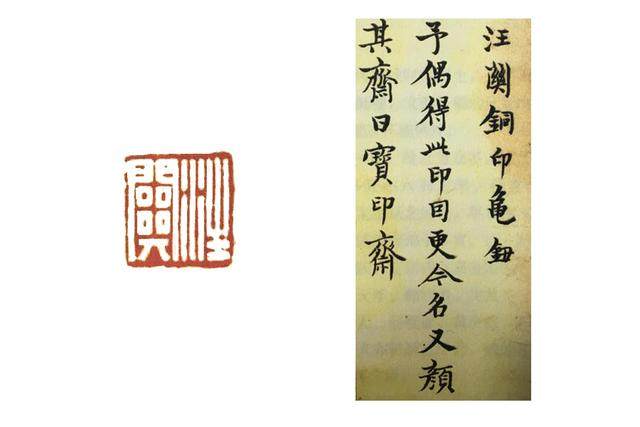 汪關
汪闗銅印亀鈕
予偶得此印囙更今名又顏
其齋曰寶印齋